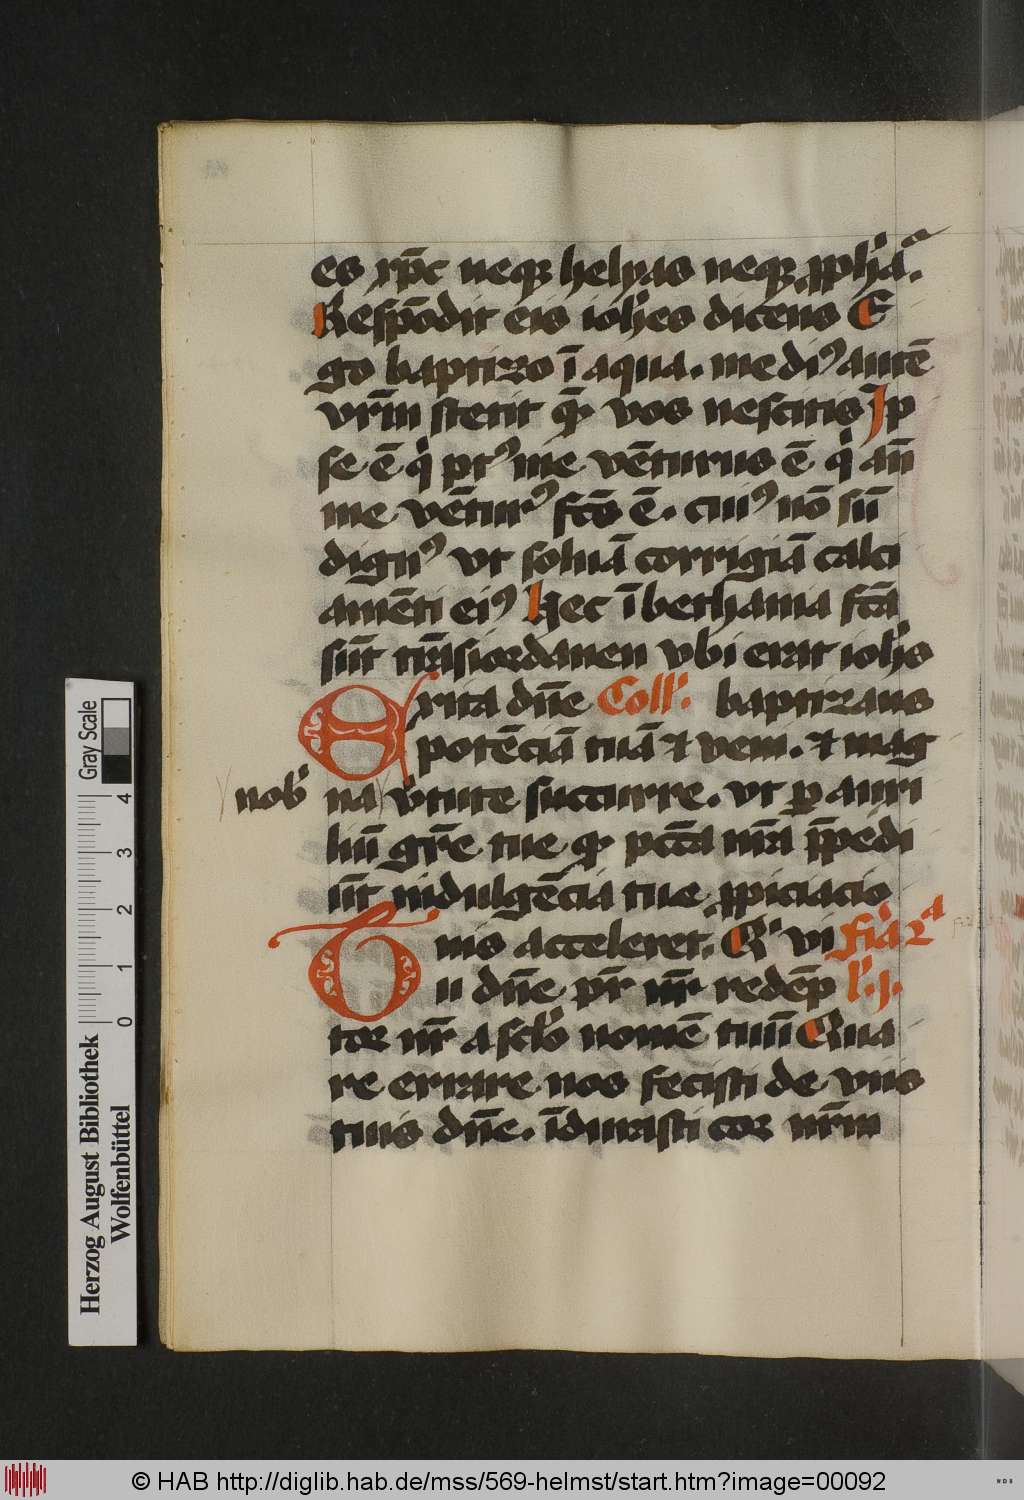 es xp̄c neqꝫ helyas neqꝫ ꝓph̓a.
Respōdit eis ioh̓es dicens E
go baptizo ī aqua. mediꝰ autē
vr̄m stetit q̄ vos nescitis Ip
se ē qͥ ptꝰ me vēturus ē qͥ an̄
me vēturꝰ fcs̄ ē. cuiꝰ nō sū
dignꝰ vt soluā corrigiā calci
amēti eiꝰ Hec ī bethania fct̄a
sūt trāsiordanen vbi erat ioh̓s
Exita dn̄e Coll̓. baptizans
potēciā tuā ⁊ veni. ⁊ mag
nob̓ na v̓tute succurre. vt per auxi
liū gr̄e tue qͥ pct̄a nr̄a p̄pedi
ūt indulgēcia tue ꝓpiciacio
nis acceleret. Qͥ vi fīa 2ͣ
Tu dn̄e pr̄ nr̄ redēp l̓.j.
tor nr̄ a sclo̓ nomē tuū Qua
re errare nos fecisti de viis
tuis dn̄e. īdurasti cor nr̄m
Gray Scale
4
3
2
1
0
Herzog August Bibliothek
Wolfenbüttel
© HAB http://diglib.hab.de/mss/569-helmst/start.htm?image=00092